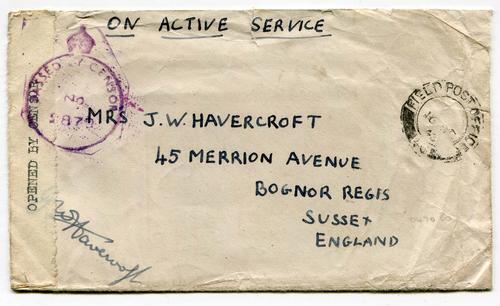 ON ACTIVE SERVICE
PASSED BY CENSOR
No
OPENED BY CENSOR
FIELD POST OFFICE
MRS J.W. HAVERCROFT
45 MERRION AVENUE
BOGNOR REGIS
SUSSEX
ENGLAND
Havercroft